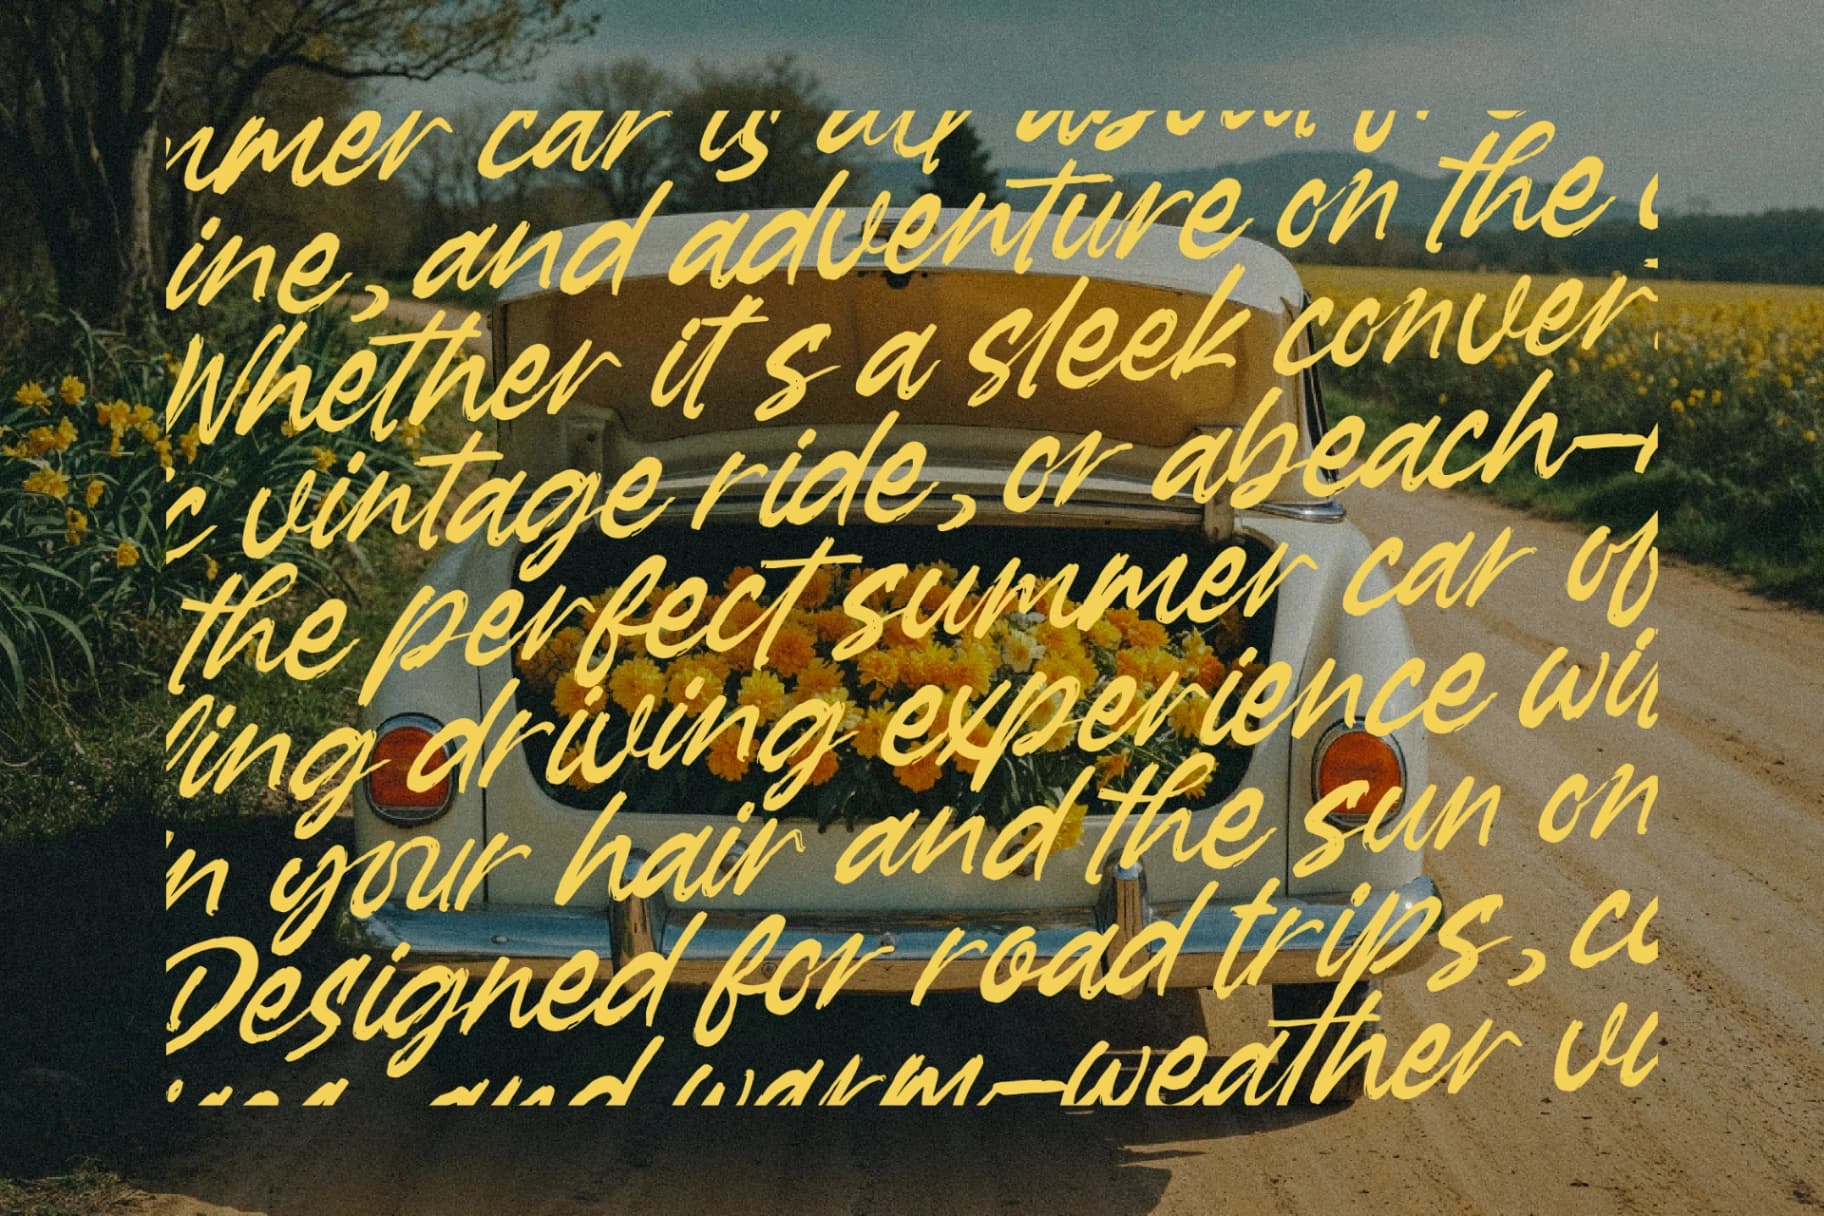 mmer car is all about f
ine, and adventure on the
Whether it's a sleek conver
c vintage ride, or abeach-
the perfect summer car of
ling driving experience wi
in your hair and the sun on
Designed for road trips, co
and warm-weather v